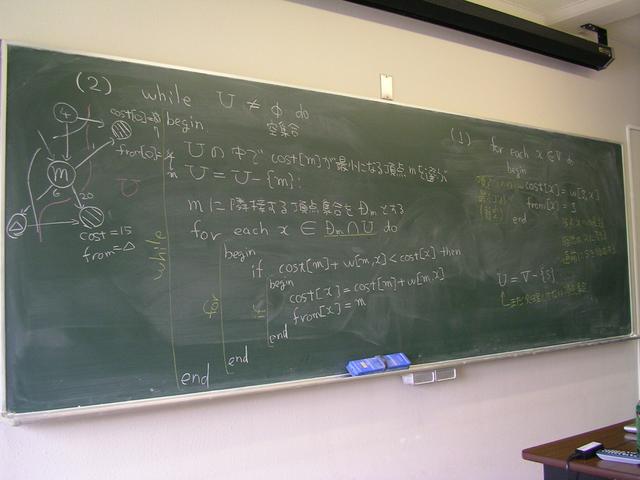 (2) while U ≠ ∅ do
空集合
begin
Uの中でcost[m]が最小になる頂点mを選ぶ
U = U - {m};
mに隣接する頂点集合をDmとする
for each x ∈ Dm∩U do
begin
if cost[m]+w[m,x]<cost[x] then
begin
cost[x]=cost[m]+w[m,x]
from[x]=m
end
end
end
while
for
if
4
m
6
20
U
cost=15
from=△
(1) for each x ∈ V do
begin
cost[x]=w[s,x]
from[x]=s
end
U = V-{s}